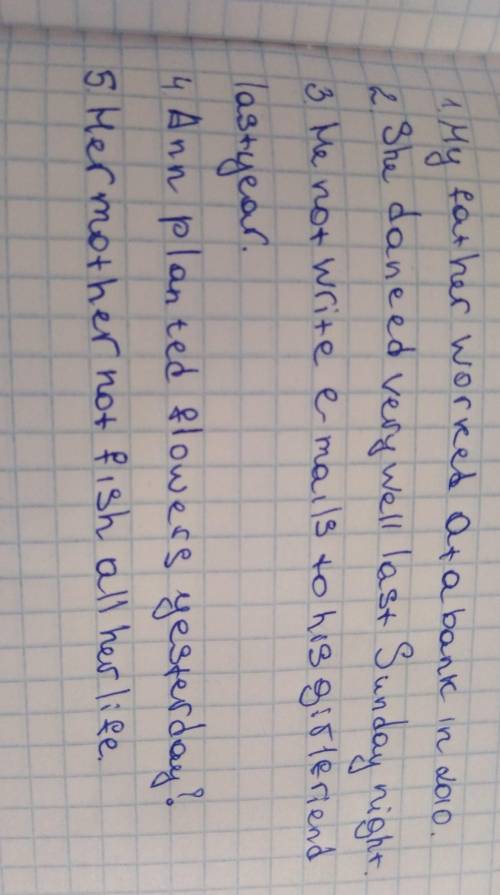 1. My father worked at a bank in 2010.
2. She danced very well last Sunday night.
3. He not write e-mails to his girlfriend
last year.
4. Ann planted flowers yesterday?
5. Her mother not fish all her life.